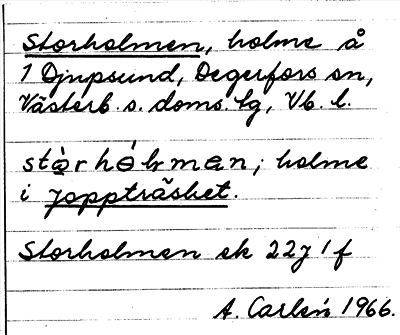 Storholmen, holme å
1 Djupsund, Degerfors sn,
Västerb. s. doms. lg, Vb. l.
stò̱rhólmen; holme
i Joppträsket.
Storholmen ek 22J 1f
A. Carlén 1966.